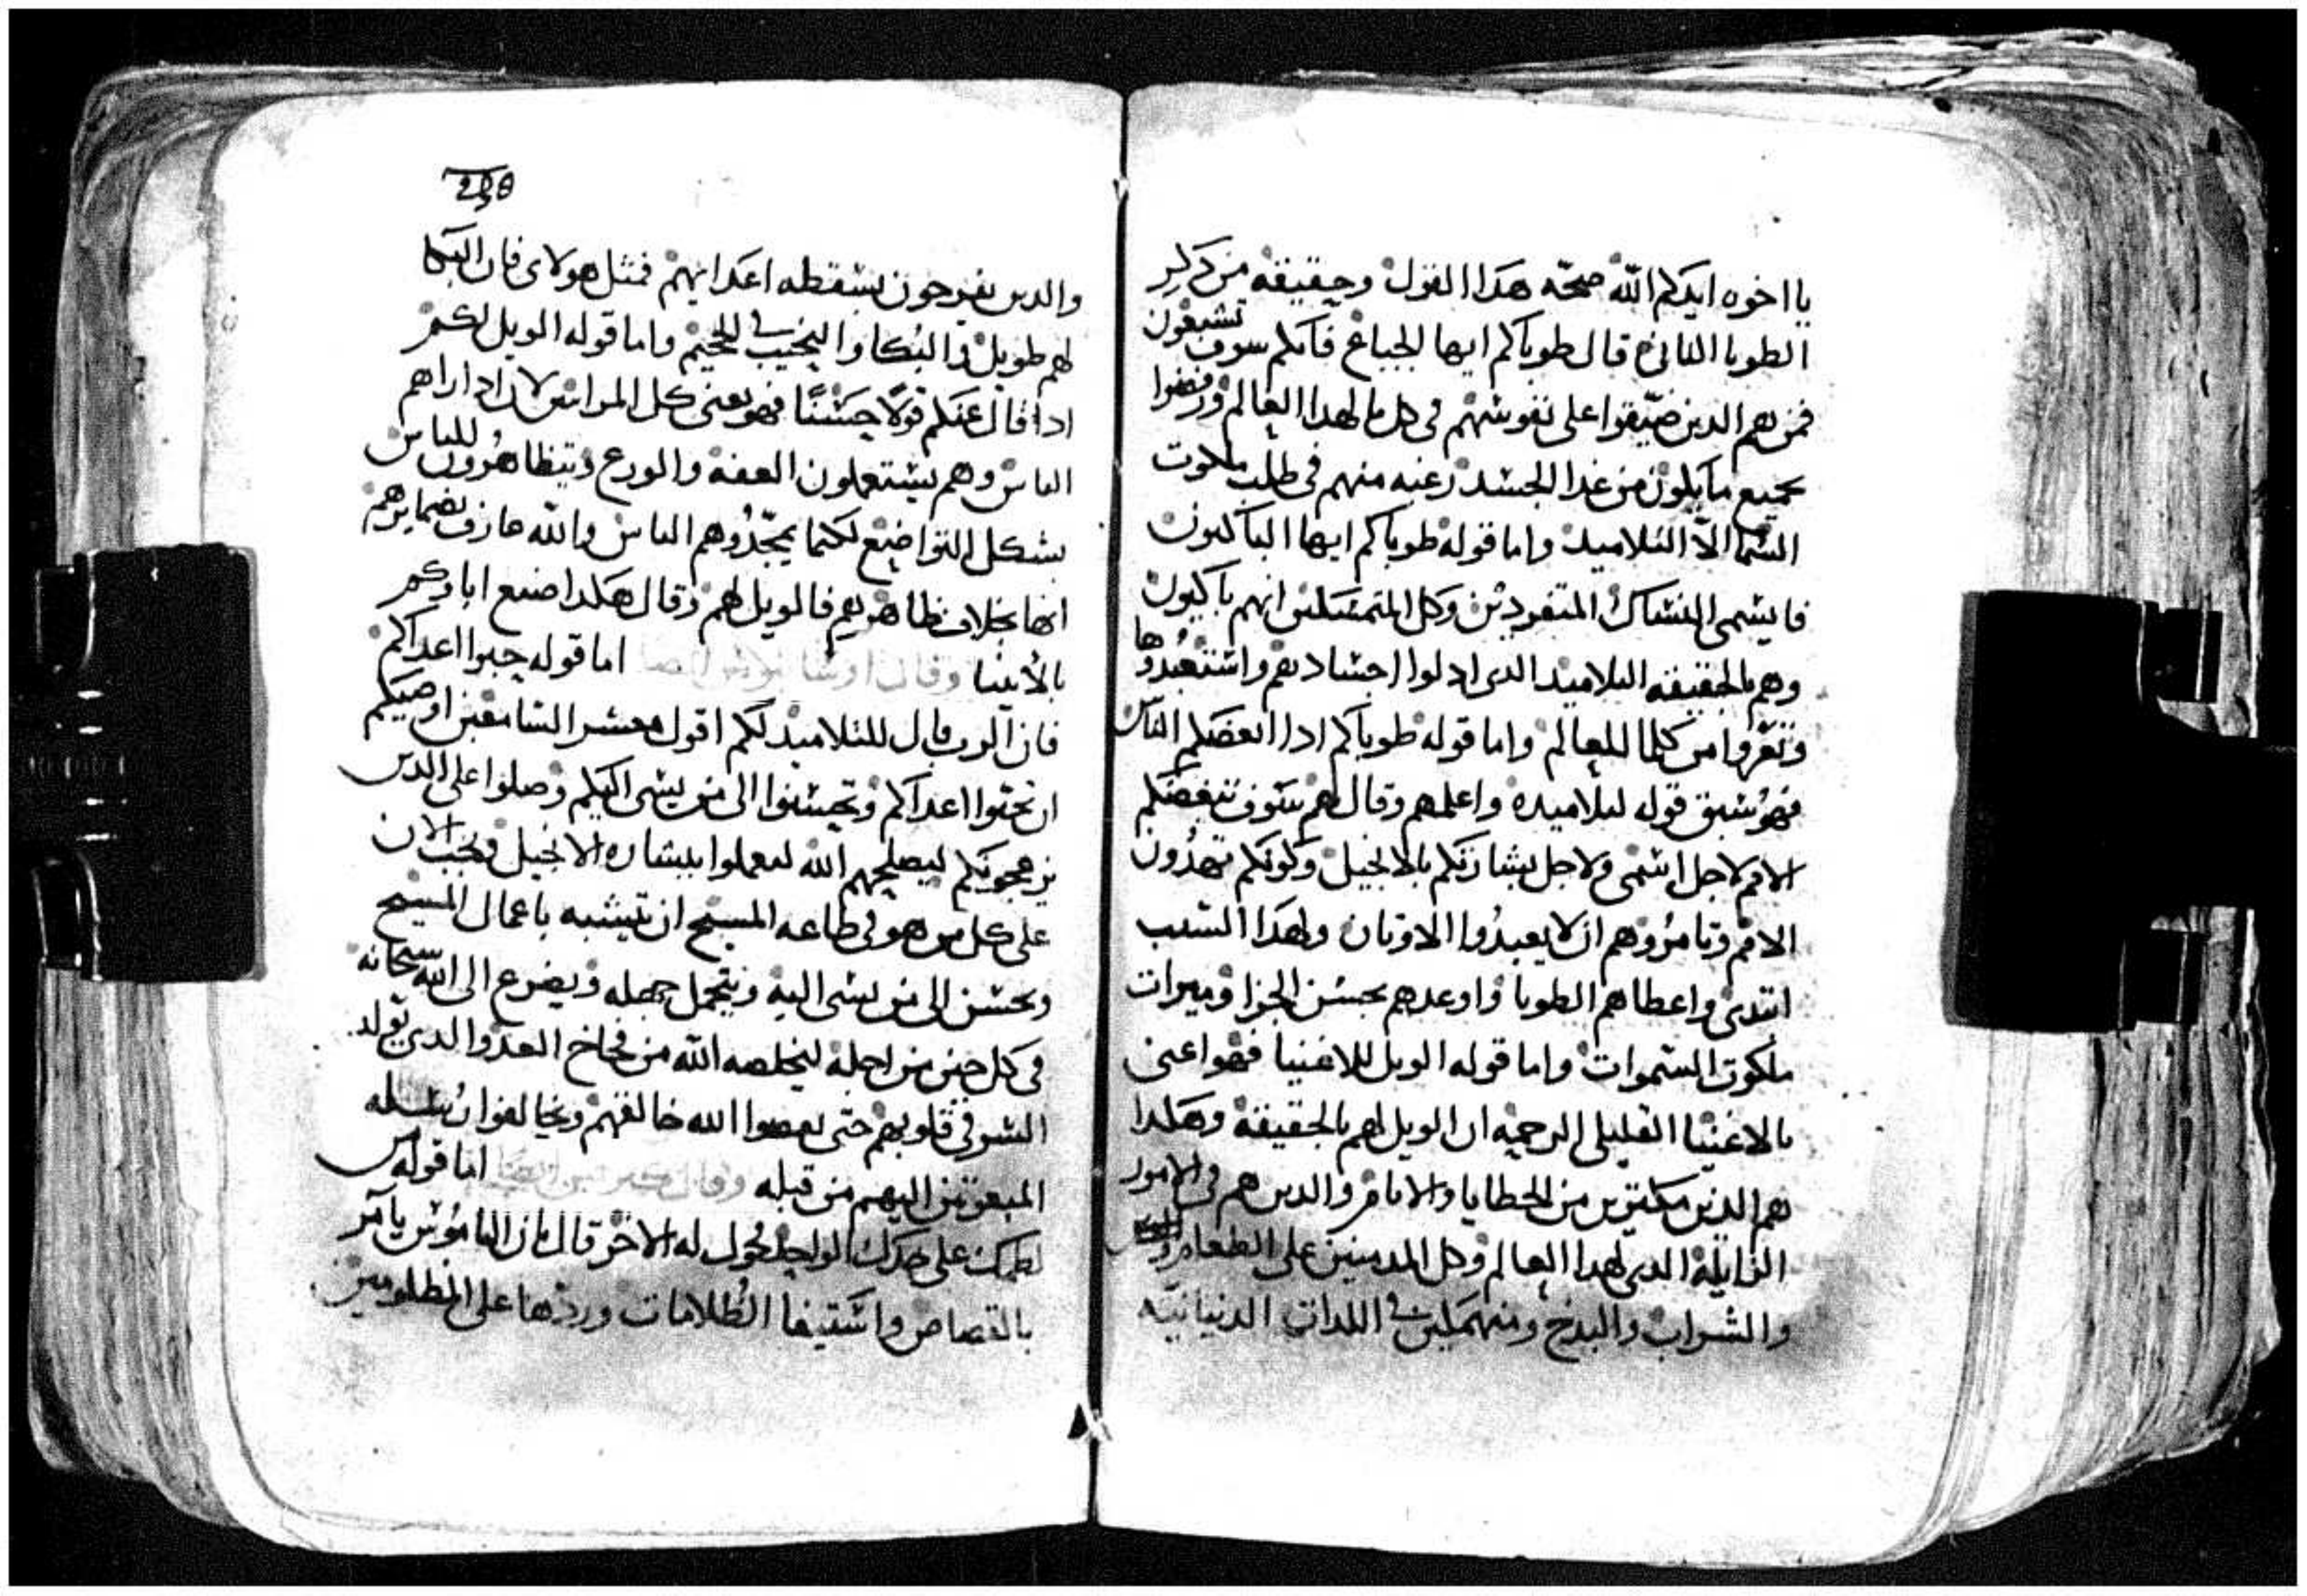 يا اخوه ايدكم الله صحّه هدا القول وحقيقة من دكر
الطوبا الثانيه قال طوباكم ايها الجياع فانكم سوف تشبعون
فمن هم الدين ضيّقوا على نفوسهم فى كل ما لهدا العالم ورفضوا
جميع ما يلون من غدا الجسد رغبه منهم فى طلب ملكوت
السما الاّ التلاميد واما قوله طوباكم ايها الباكيون
فايسمى النساك المتفردين وكل المتمسكين انهم باكيون
وهم بالحقيقه التلاميد الدى ادلوا اجسادهم واستعبدوها
وتعّروا من كلما للعالم واما قوله طوباكم ادا ابغضكم الناس
فهو سبق قوله لتلاميده واعلمهم وقال لهم سوف تبغضكم
الامم لاجل اسمى ولاجل بشارتكم بالانجيل وكونكم تهدون
الامم وتامروهم ان لا يعبدوا الاوتان ولهدا السبب
ابتدى واعطاهم الطوبا واوعدهم بحسن الجزا وميرات
ملكوت السموات واما قوله الويل للاغنيا فهو اعنى
بالاغنيا القليلى الرحمه ان الويل لهم بالحقيقة وهكدا
هم الدين مكترين من الخطايا والاتام والدين هم فى الامور
الزايلة الدى لهدا العالم وكل المدمنين على الطعام
والشراب والبدخ ومنهمكين فى اللدات الدنيانيّه
238
والدين يفرحون بسقطه اعدايهم فمثل هولاى فان البكا
لهم طويل والبكا والنحيب فى الجحيم واما قوله الويل لكم
ادا قال عنكم قولاً حسناً فهو يعنى كل المرايين لان ادا راهم
الناس وهم يستعملون العفة والورع ويتظاهرون للناس
بشكل التواضع لكيما يمجّدوهم الناس والله عارف بضمايرهم
انها بخلاف ظاهرهم فالويل لهم وقال هكدا صنع اباوكم
بالأنبيا وقال اوسابيوس ايضا اما قوله حبوا اعداكم
فان الرب قال للتلاميد لكم اقول معشر السامعين اوصيكم
ان تحبّوا اعداكم وتحسنوا الى من يسى اليكم وصلوا على الدين
يزعجونكم ليصلحهم الله ليعملوا ببشاره الانجيل ويجب الان
على كل من هو فى طاعه المسيح ان يتشبه باعمال المسيح
ويحسن الى من يسى اليه ويتحمل جهله ويضرع الى الله سبحانه
فى كل حين من اجلة ليخلصه الله من فخاخ العدو الدى يولد
الشر فى قلوبهم حتى يعصوا الله خالقهم ويخالفوا رسله
المبعوتين اليهم من قبله وقال ايضا اما قوله من
لطمك على خدك الواحد فحول له الاخر قال بان الناموس يامر
بالقصاص واستيفا الظلامات وردها على المظلومين